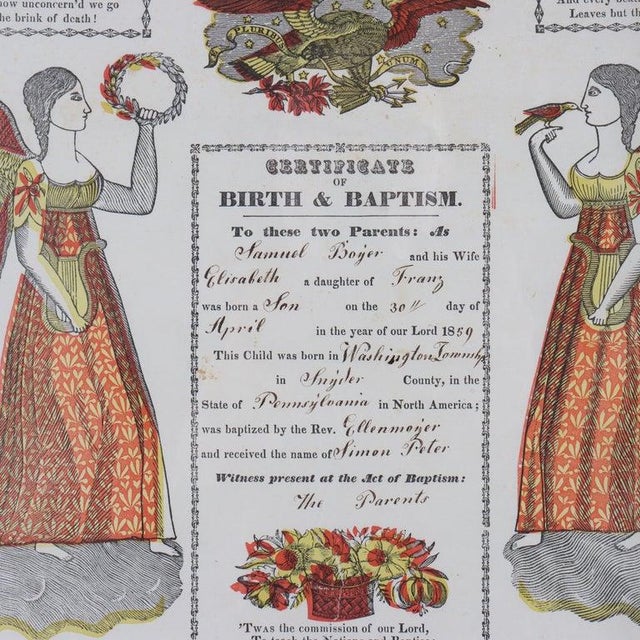 now unconcern'd we go
the brink of death!
Leaves but th
E PLURIBUS
UNUM
CERTIFICATE
OF
BIRTH & BAPTISM.
To these two Parents: As
Samuel Boyer and his Wife
Elisabeth a daughter of Franz
was born a Son on the 30th day of
April in the year of our Lord 1859
This Child was born in Washington Township
in Snyder County, in the
State of Pennsylvania in North America;
was baptized by the Rev. Ellenmoyer
and received the name of Simon Peter
Witness present at the Act of Baptism:
The Parents
'Twas the commission of our Lord,